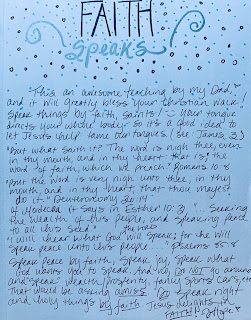 FAITH
Speaks
This an awesome teaching by my Dad,
and it will greatly bless your Christian walk!
Speak things by faith, saints! Your tongue
directs your whole body so it's a good idea to
let Jesus help tame our tongues. (see James 3)
"But what saith it? The word is nigh thee, even
in thy mouth, and in thy heart: that is, the
word of faith, which we preach" Romans 10:8
"But the word is very nigh unto thee, in thy
mouth, and in thy heart, that thou mayest
do it." Deuteronomy 30:14
of Mordecai it says in Esther 10:3, " Seeking
the wealth of his people, and speaking peace
to all his seed"
I will hear what God the LORD will speak: for he will
speak peace unto his people " Psalms 85:8
Speak peace by faith, speak joy, speak what
God wants you to speak. And no, DO NOT go around
and speak wealth, prosperity, fancy sports cars, etc.
That would be asking amiss. Do speak right
and holy things by faith. Jesus delights in
FAITH!